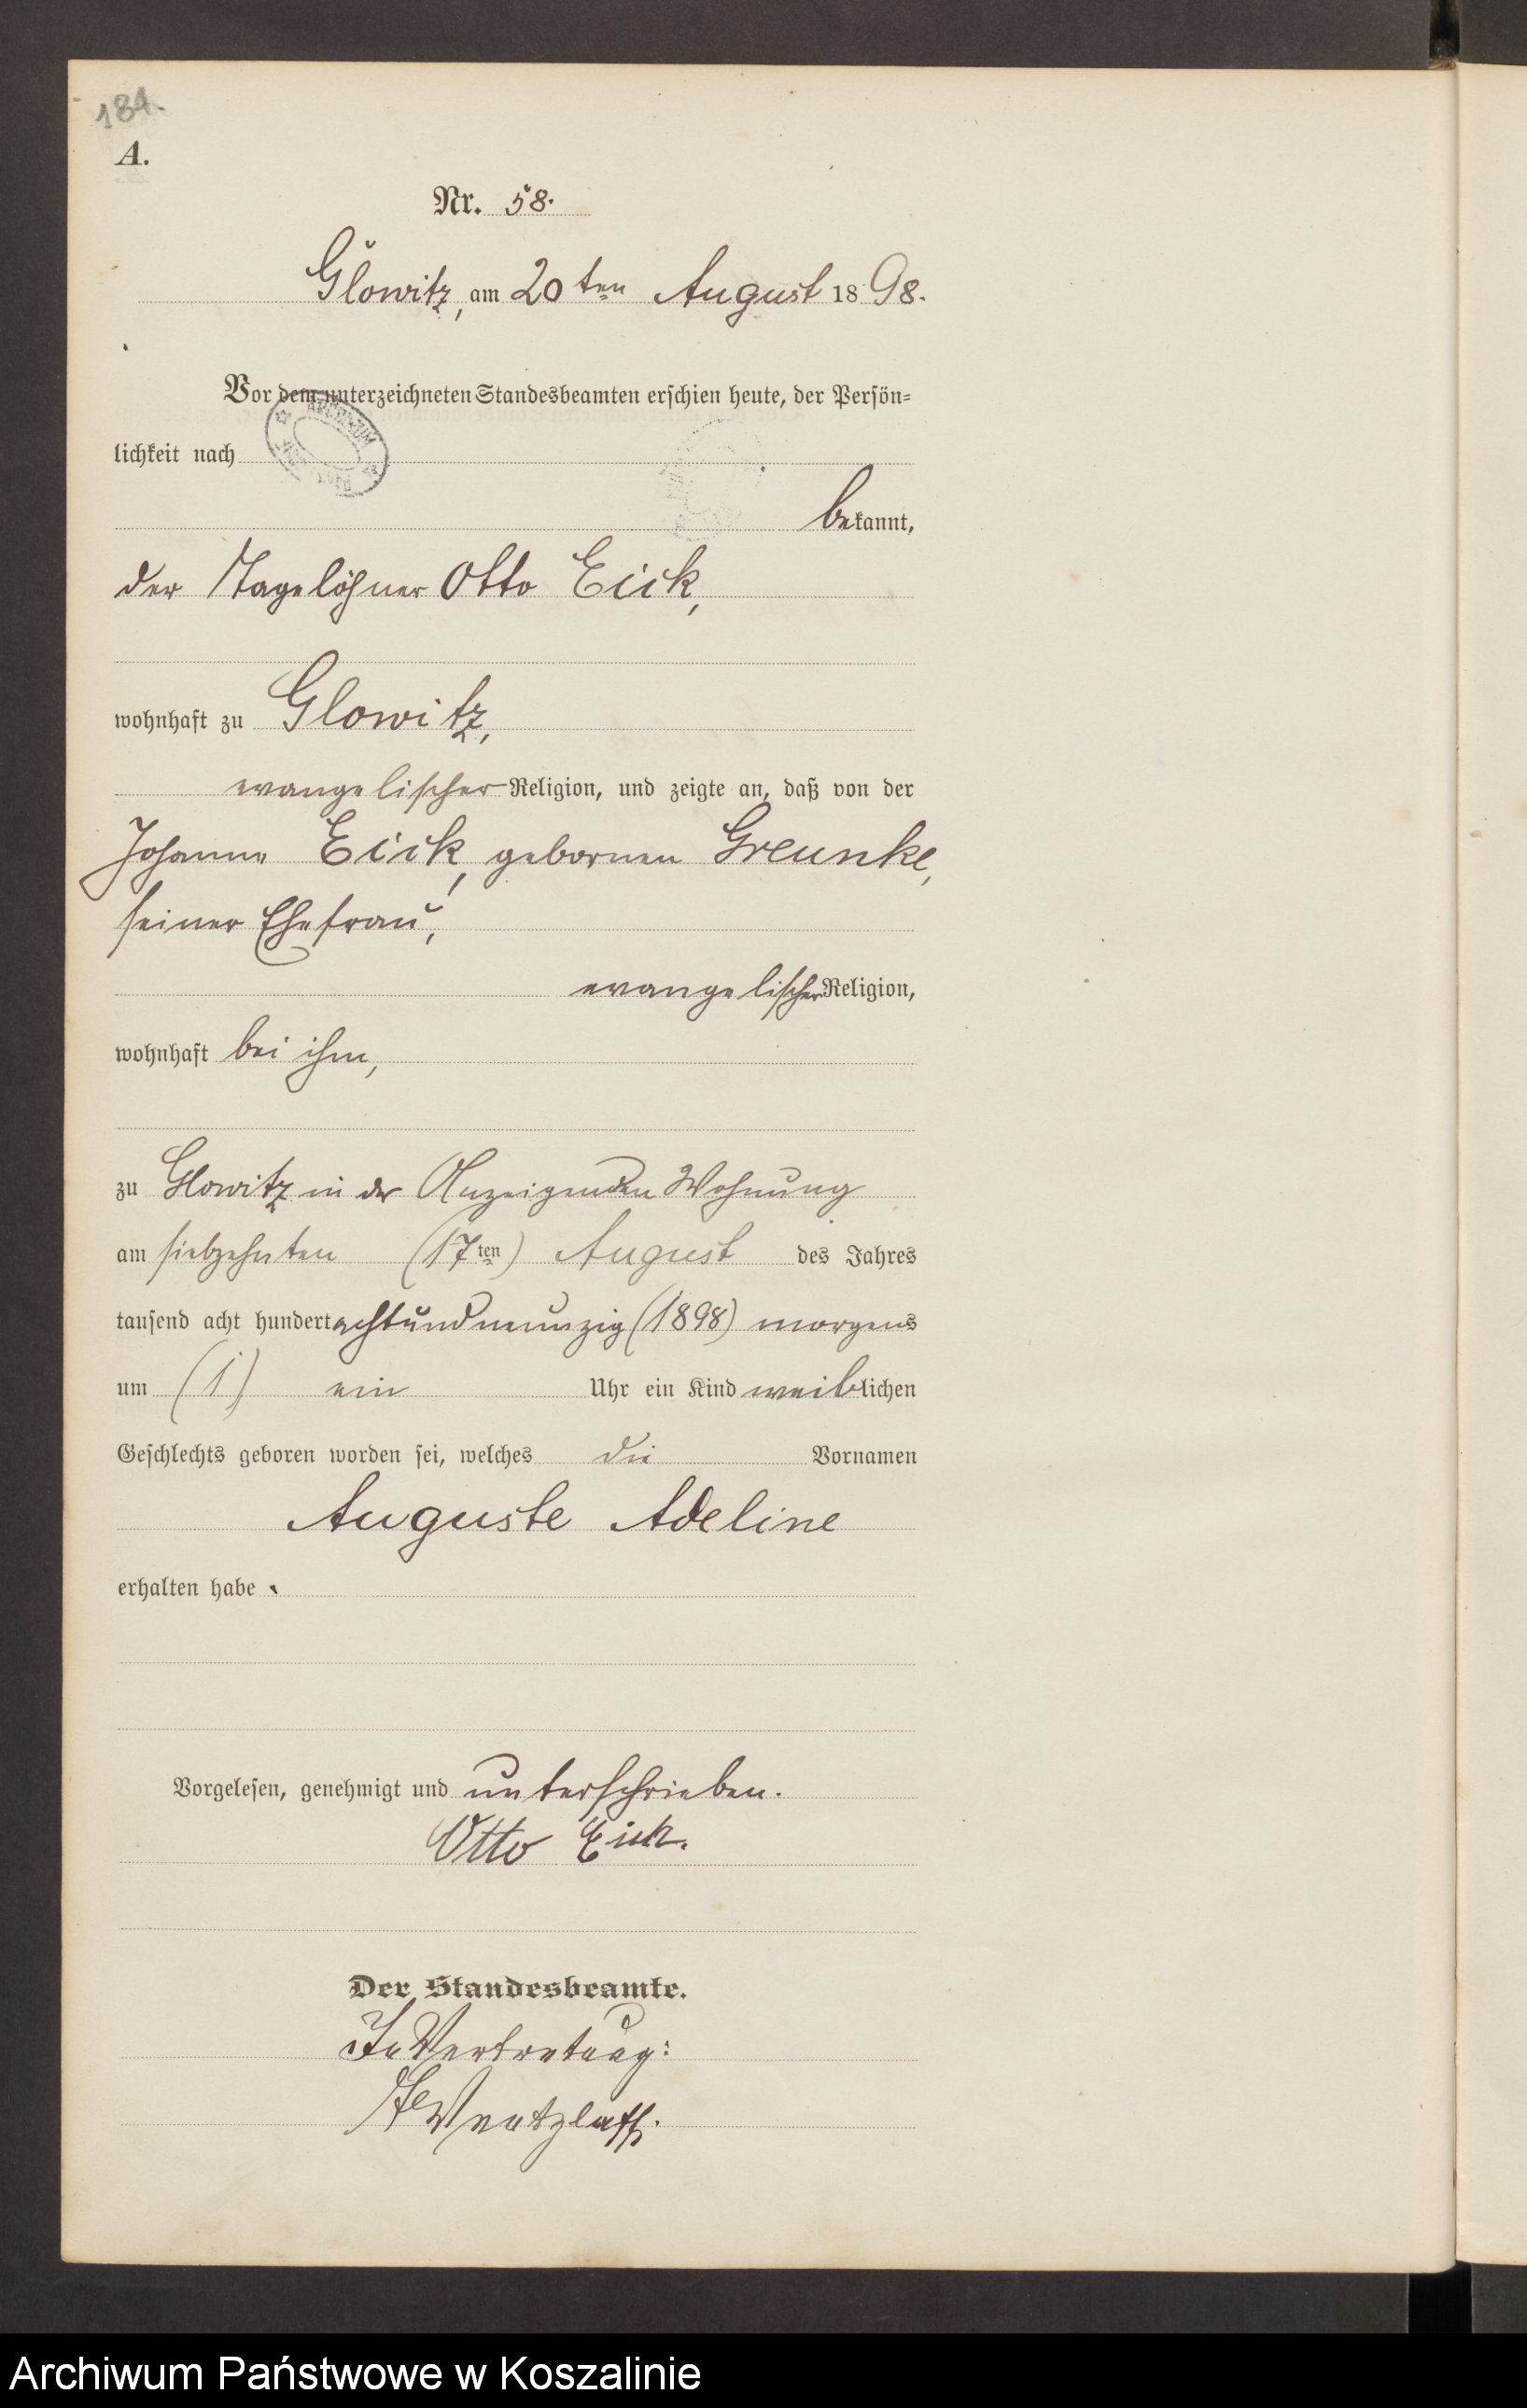 184.
A.
Nr. 58.
Glowitz, am 20ten August 1898.
Vor dem unterzeichneten Standesbeamten erschien heute, der Persön-
lichkeit nach
bekannt,
der Tagelöhner Otto Eick,
wohnhaft zu Glowitz,
evangelischer Religion, und zeigte an, daß von der
Johanne Eick, gebornen Greunke,
seiner Ehefrau,
evangelischer Religion,
wohnhaft bei ihm,
zu Glowitz in der Anzeigenden Wohnung
am siebzehnten (17ten) August des Jahres
tausend acht hundert achtundneunzig (1898) morgens
um (1) ein Uhr ein Kind weiblichen
Geschlechts geboren worden sei, welches die Vornamen
Auguste Adeline
erhalten habe.
Vorgelesen, genehmigt und unterschrieben.
Otto Eick.
Der Standesbeamte.
In Vertretung:
Wentzlaff.
Archiwum Państwowe w Koszalinie